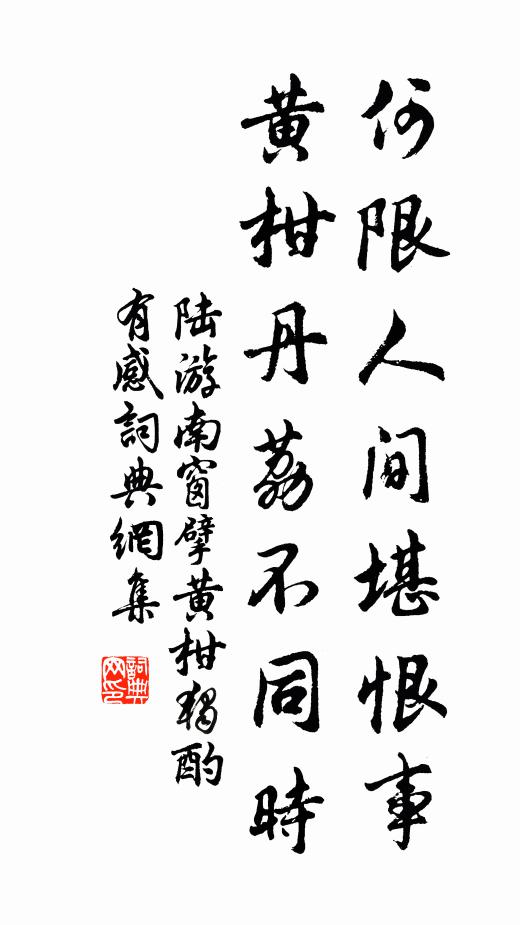 何限人间堪恨事
黄柑丹荔不同時
陆游南窗擘黄柑獨酌
有感詞典網集
詞典网印